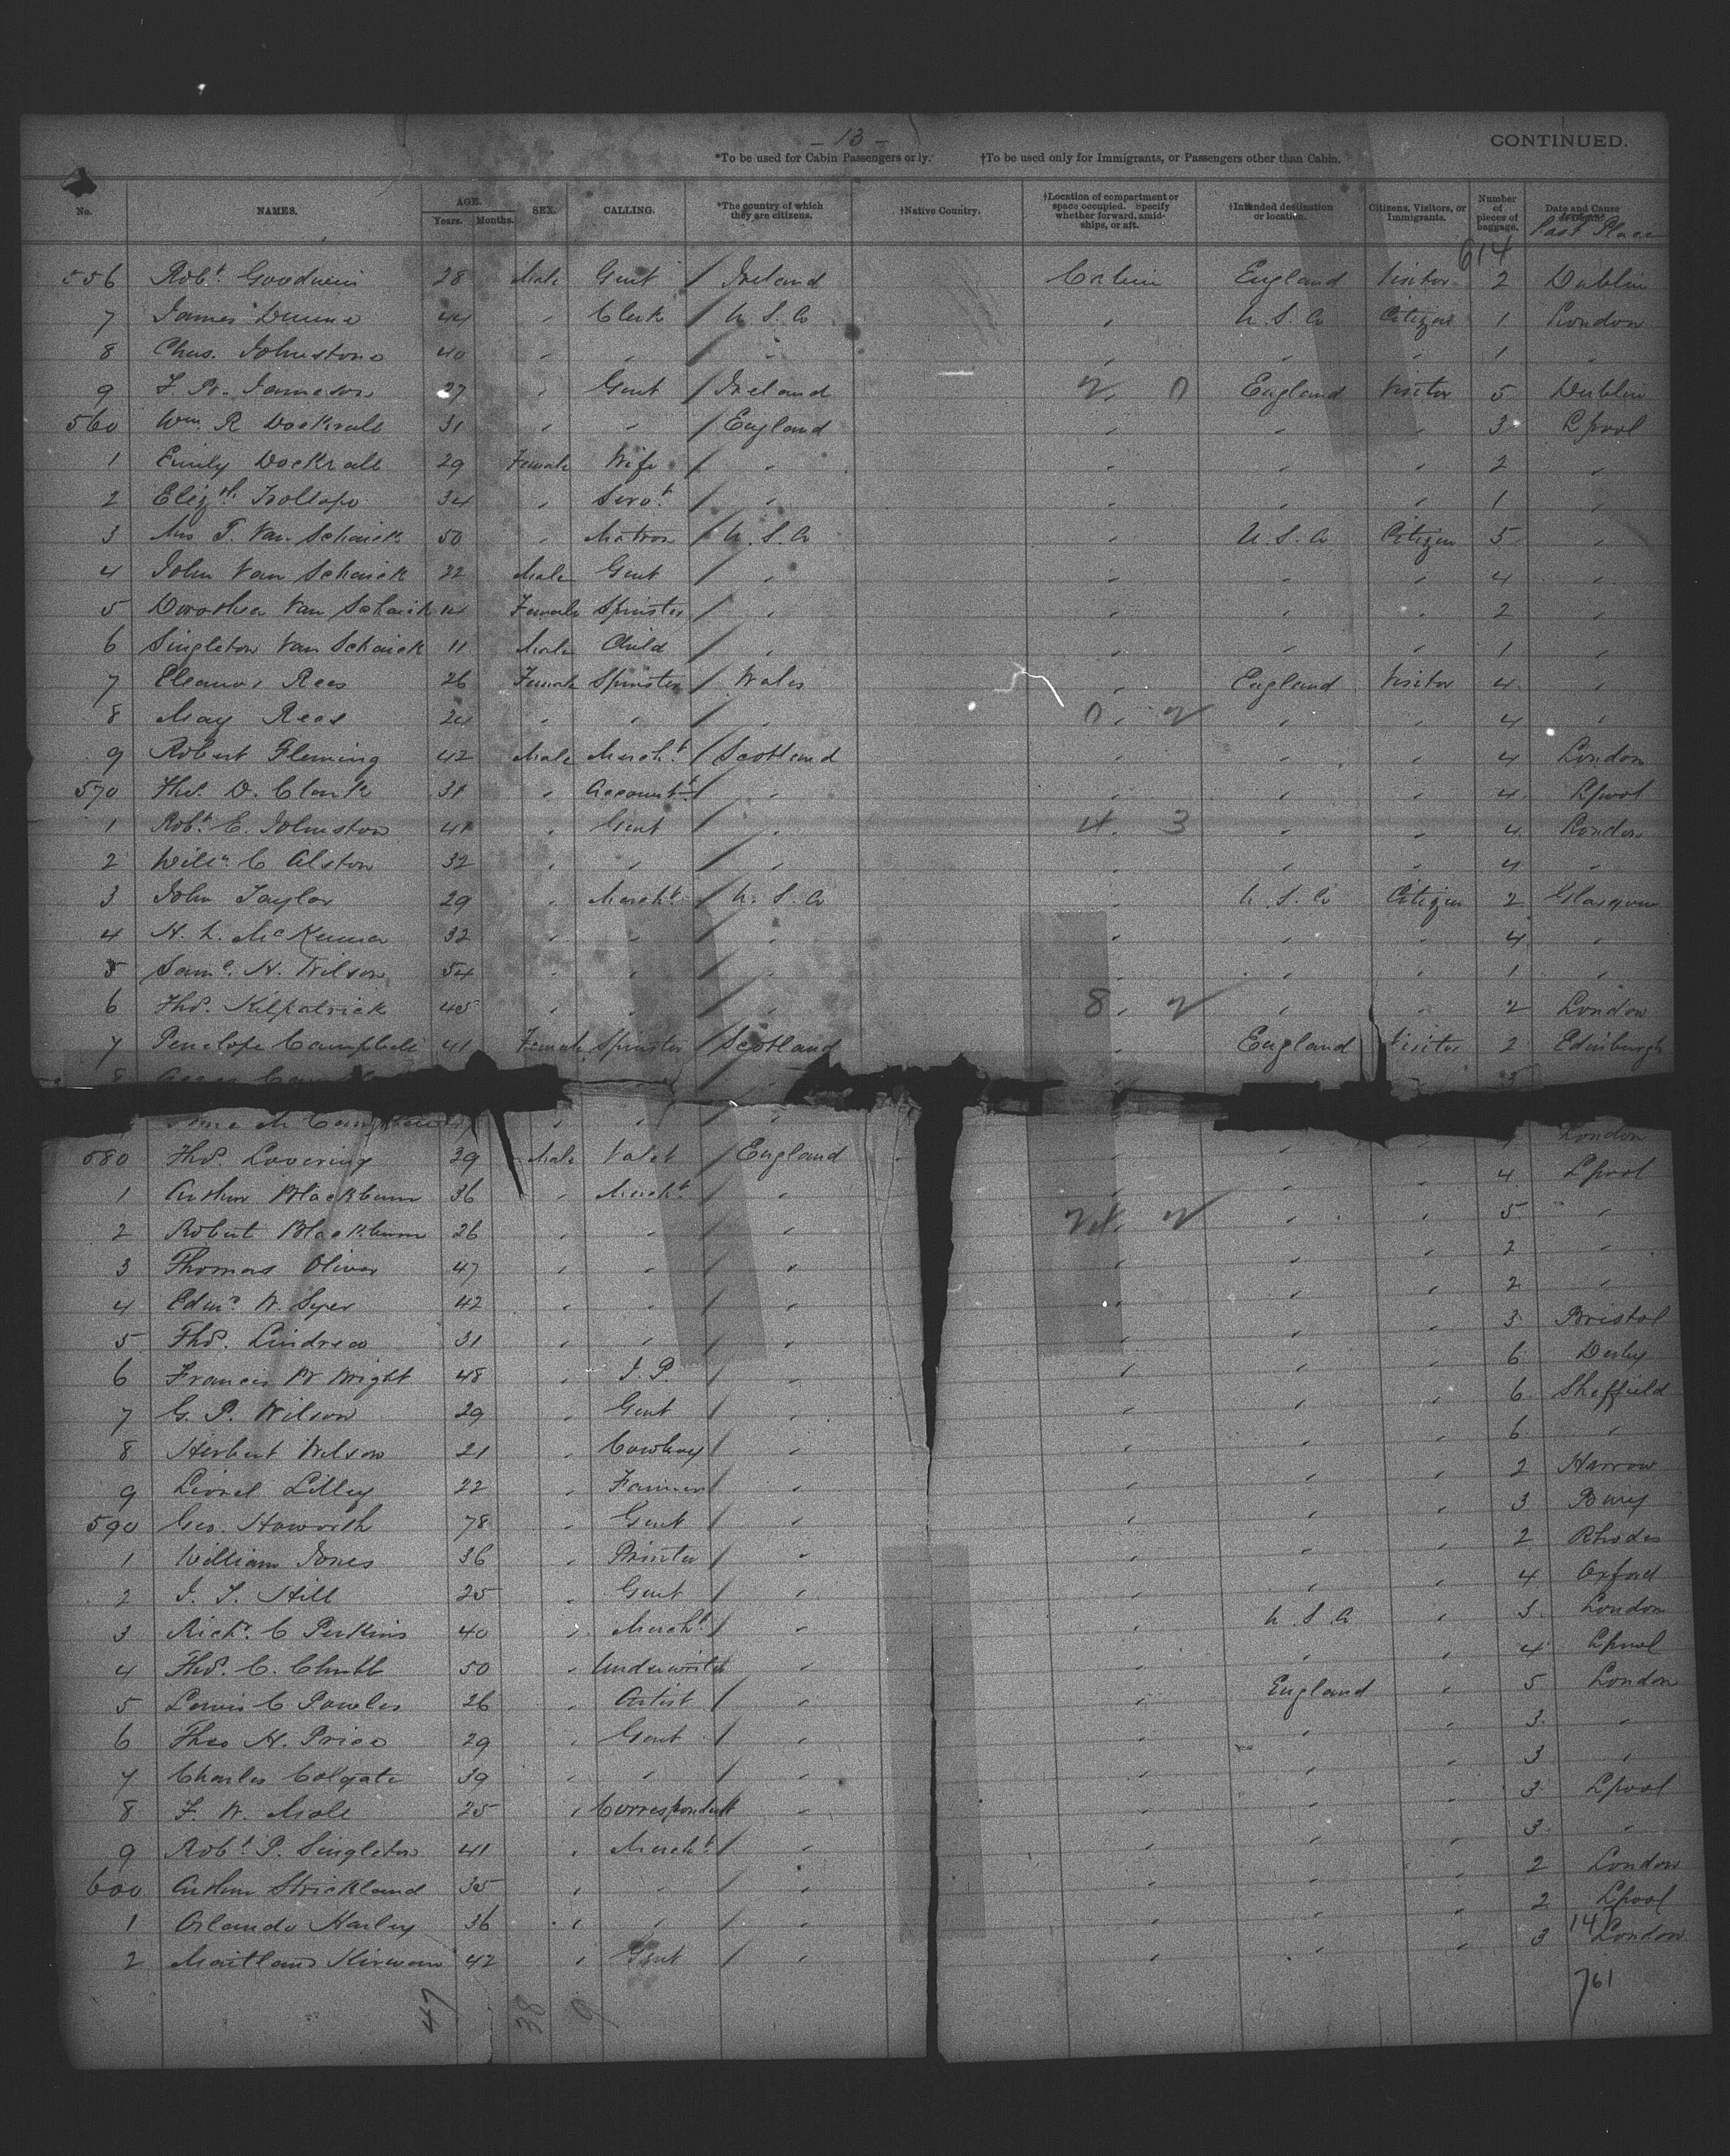 - 13 -
CONTINUED.
*To be used for Cabin Passengers only. †To be used only for Immigrants, or Passengers other than Cabin.
No. NAMES. AGE. Years. Months. SEX. CALLING. *The country of which they are citizens. †Native Country. †Location of compartment or space occupied. Specify whether forward, amidships, or aft. †Intended destination or location. Citizens, Visitors, or Immigrants. Number of pieces of baggage. Date and Cause Last Place
614
556 Robt. Goodwin 28 Male Gent / Ireland Cabin England Visitor 2 Dublin
7 James Dunne 44 " Clerk / U.S.A " U.S.A Citizen 1 London
8 Chas. Johnstone 40 " " / " " " " 1 "
9 J. W. Jameson 27 " Gent / Ireland 2 0 England Visitor 5 Dublin
560 Wm. R Dockrall 31 " " / England " " " 3 Lpool
1 Emily Dockrall 29 Female Wife / " " " " 2 "
2 Elizth. Trollope 34 " Servt. / " " " " 1 "
3 Mrs T. Van Schaick 50 " Matron / U.S.A " U.S.A Citizen 5 "
4 John Van Schaick 22 Male Gent / " " " " 4 "
5 Dorothea Van Schaick 14 Female Spinster / " " " " 2 "
6 Singleton Van Schaick 11 Male Child / " " " " 1 "
7 Eleanor Rees 26 Female Spinster / Wales " England Visitor 4 "
8 May Rees 24 " " / " 0 2 " " 4 "
9 Robert Fleming 42 Male Mercht. / Scotland " " " 4 London
570 Thos. D. Clark 31 " Accountt. / " " " " 4 Lpool
1 Robt. E. Johnston 41 " Gent / " 4 3 " " 4 London
2 Willm. C Alston 32 " " / " " " " 4 "
3 John Taylor 29 " Mercht. / U.S.A " U.S.A Citizen 2 Glasgow
4 H. L. McKenna 32 " " / " " " " 4 "
5 Saml. H. Wilson 54 " " / " " " " 1 "
6 Thos. Kilpatrick 45 " " / " 8 2 " " 2 London
7 Penelope Campbell 41 Female Spinster / Scotland " England Visitor 2 Edinburgh
8 / " 3
" " / " " London
580 Thos. Lovering 39 Male Valet / England " " " 4 Lpool
1 Arthur Blackburn 36 " Mercht. / " " " " 5 "
2 Robert Blackburn 26 " " / " 24 2 " " 2 "
3 Thomas Oliver 47 " " / " " " " 2 "
4 Edmd. W. Syer 42 " " / " " " " 3 Bristol
5 Thos. Lindrea 31 " " / " " " " 6 Derby
6 Francis W Wright 48 " J.P. / " " " " 6 Sheffield
7 G. P. Wilson 29 " Gent / " " " " 6 "
8 Herbert Wilson 21 " Cowboy / " " " " 2 Harrow
9 Lionel Lilley 22 " Farmer / " " " " 3 Bury
590 Geo. Haworth 78 " Gent / " " " " 2 Rhodes
1 William Jones 36 " Printer / " " " " 4 Oxford
2 J. T. Hill 25 " Gent / " " U.S.A " 3 London
3 Richd. C Perkins 40 " Mercht. / " " " " 4 Lpool
4 Thos. C. Chubb 50 " Underwriter / " " England " 5 London
5 Lewis C Powles 26 " Artist / " " " " 3 "
6 Theo H. Price 29 " Gent / " " " " 3 "
7 Charles Colgate 39 " " / " " " " 3 Lpool
8 F. W. Mole 25 " Correspondent / " " " " 3 "
9 Robt. P. Singleton 41 " Mercht. / " " " " 2 London
600 Arthur Strickland 35 " " / " " " " 2 Lpool
1 Orlando Harley 36 " " / " " " " 3 London
2 Maitland Kirwan 42 " Gent / " " "
147
47 38 9 761